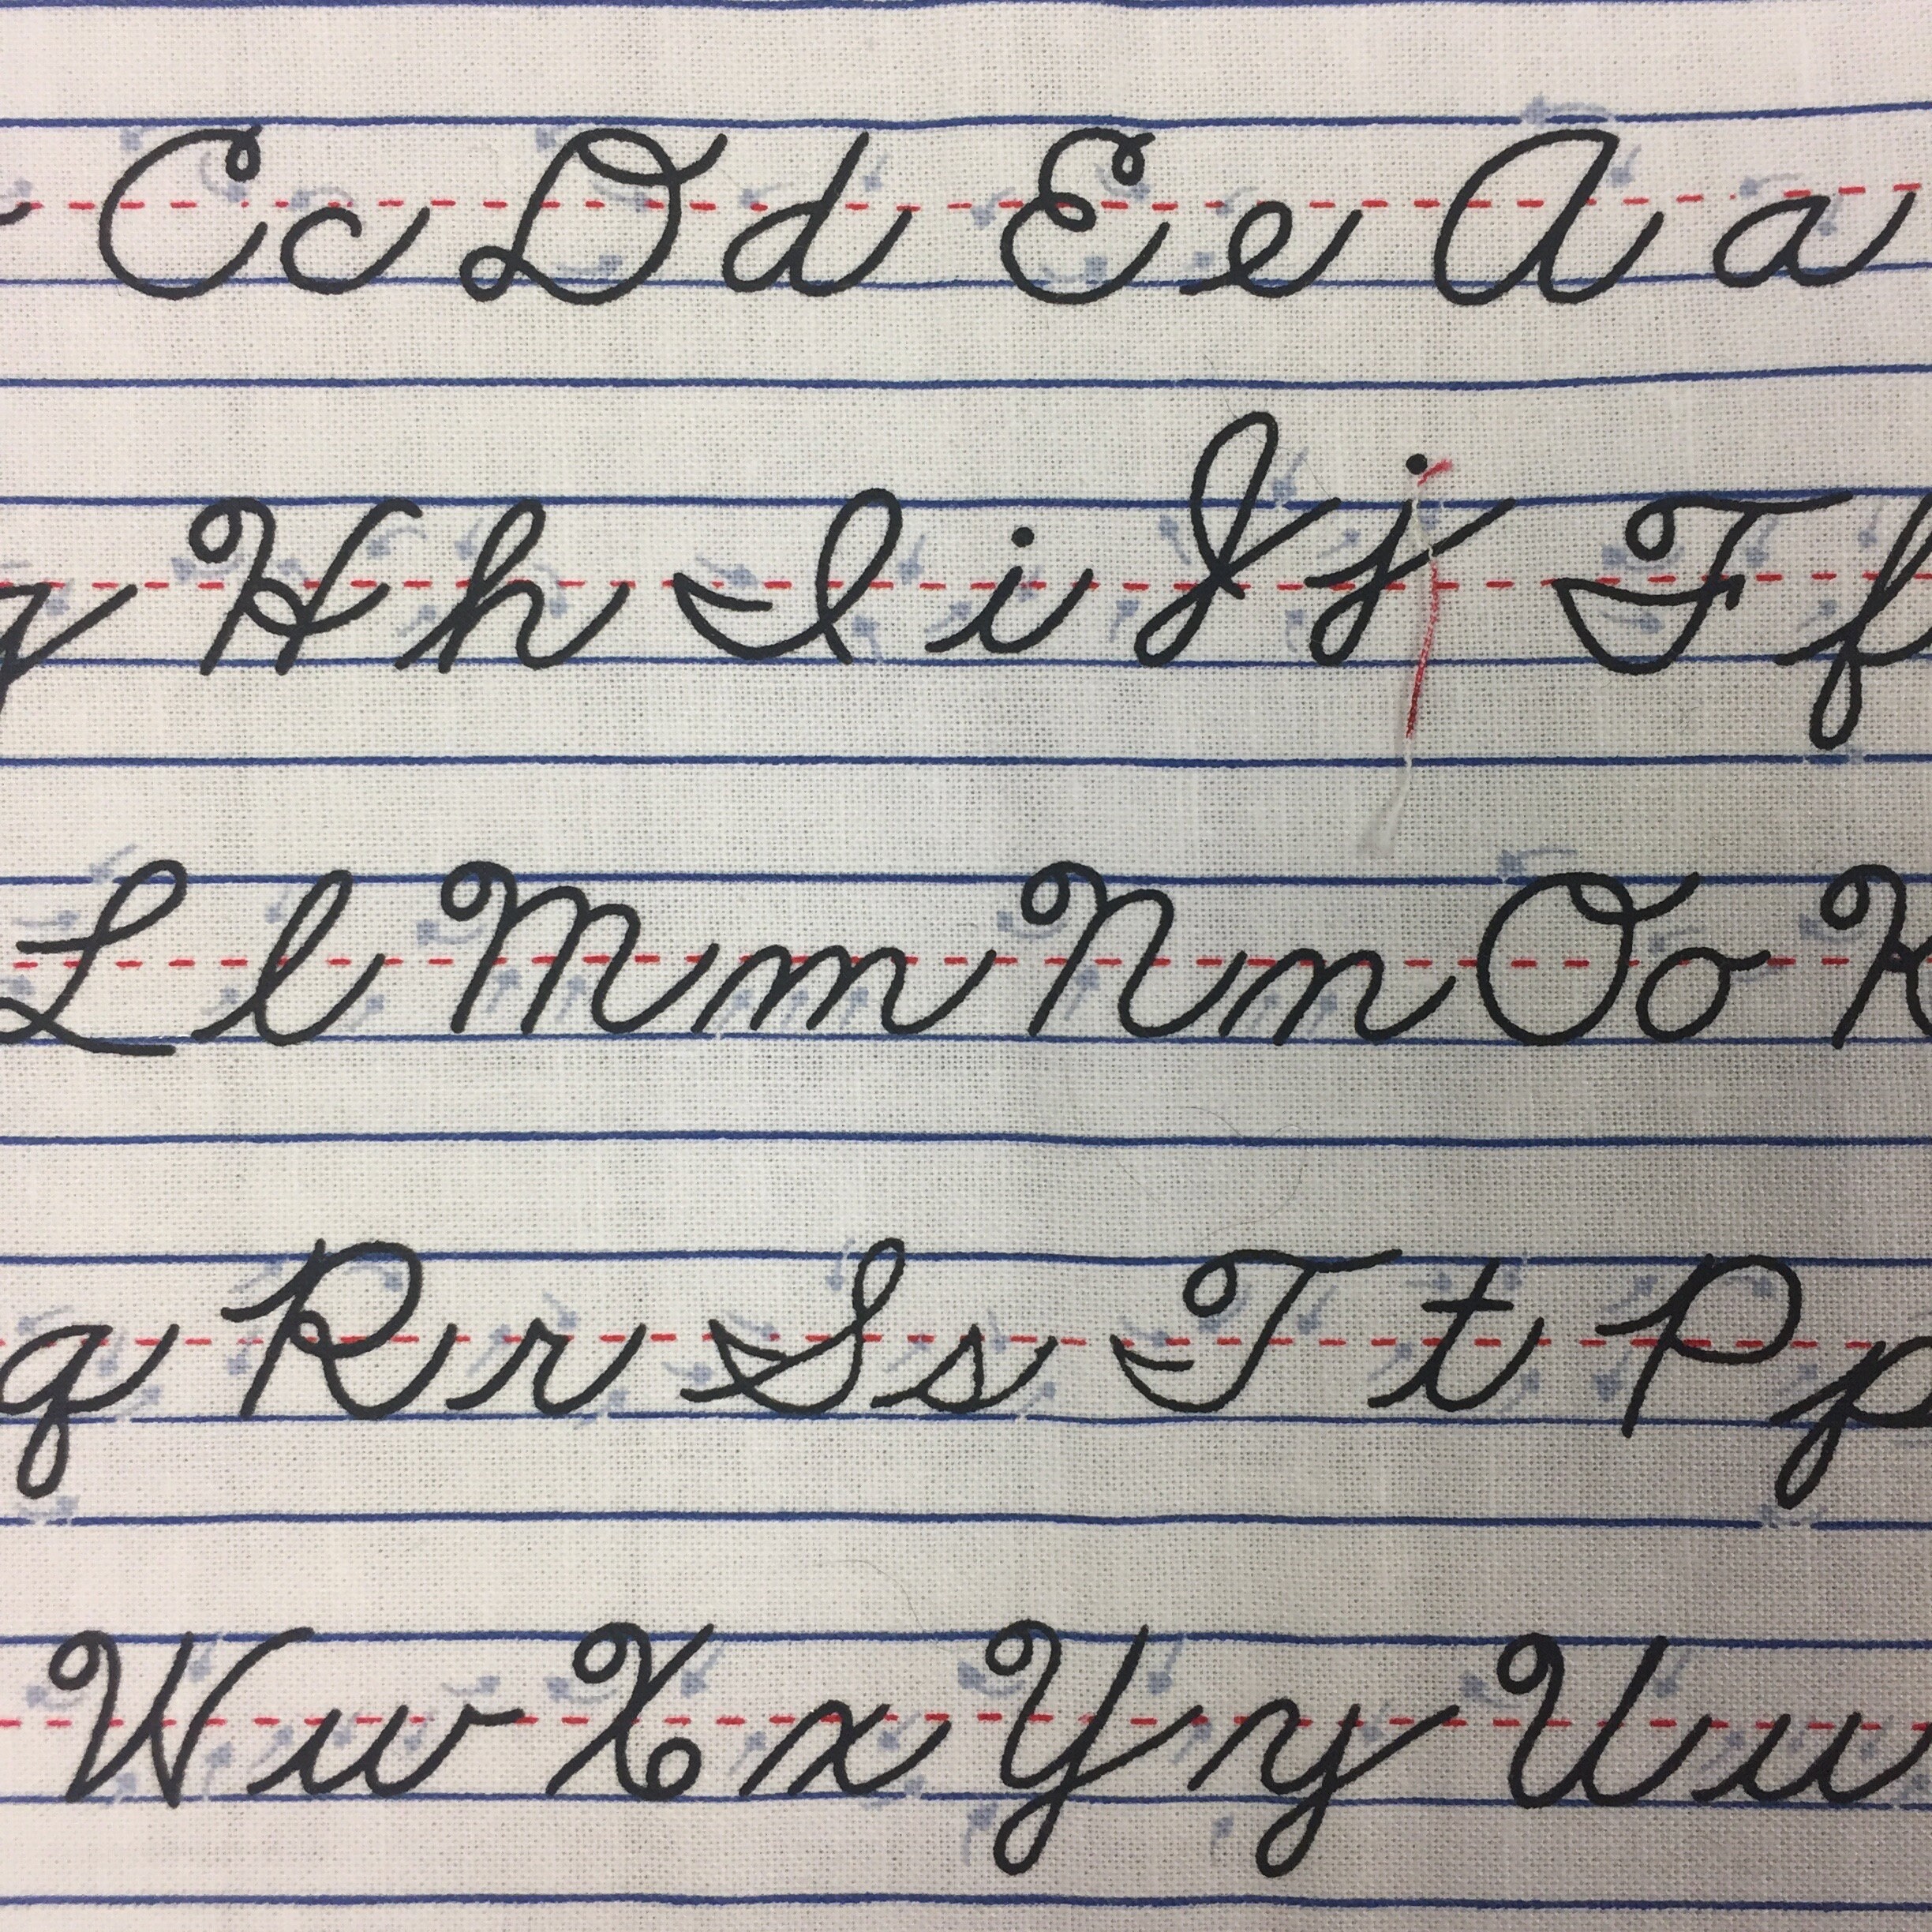 Cc Dd Ee Aa
Hh Ii Jj Ff
Ll Mm Nn Oo K
q Rr Ss Tt Pp
Ww Xx Yy Uu